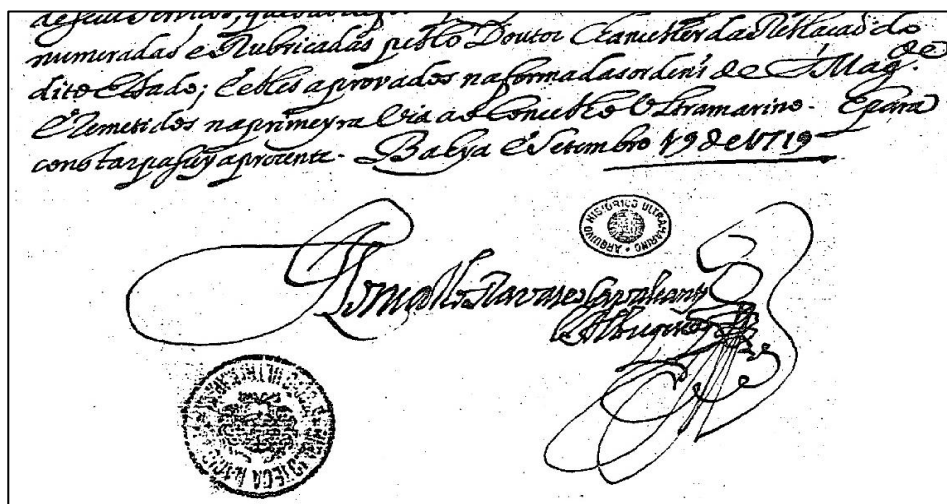 de seu
numeradas e Rubricadas pello Doutor Chanceller da Rellacaõ do
dito Estado; e elles aprovados na forma das ordens de S Mag.de
e Remetidos na primeyra Via ao Concelho Ultramarino. E para
constar pasey a prezente. Bahya e Setembro 19 de 1719
ARQUIVO HISTÓRICO ULTRAMARINO
Tavares Cavalcante
e Albuquerque